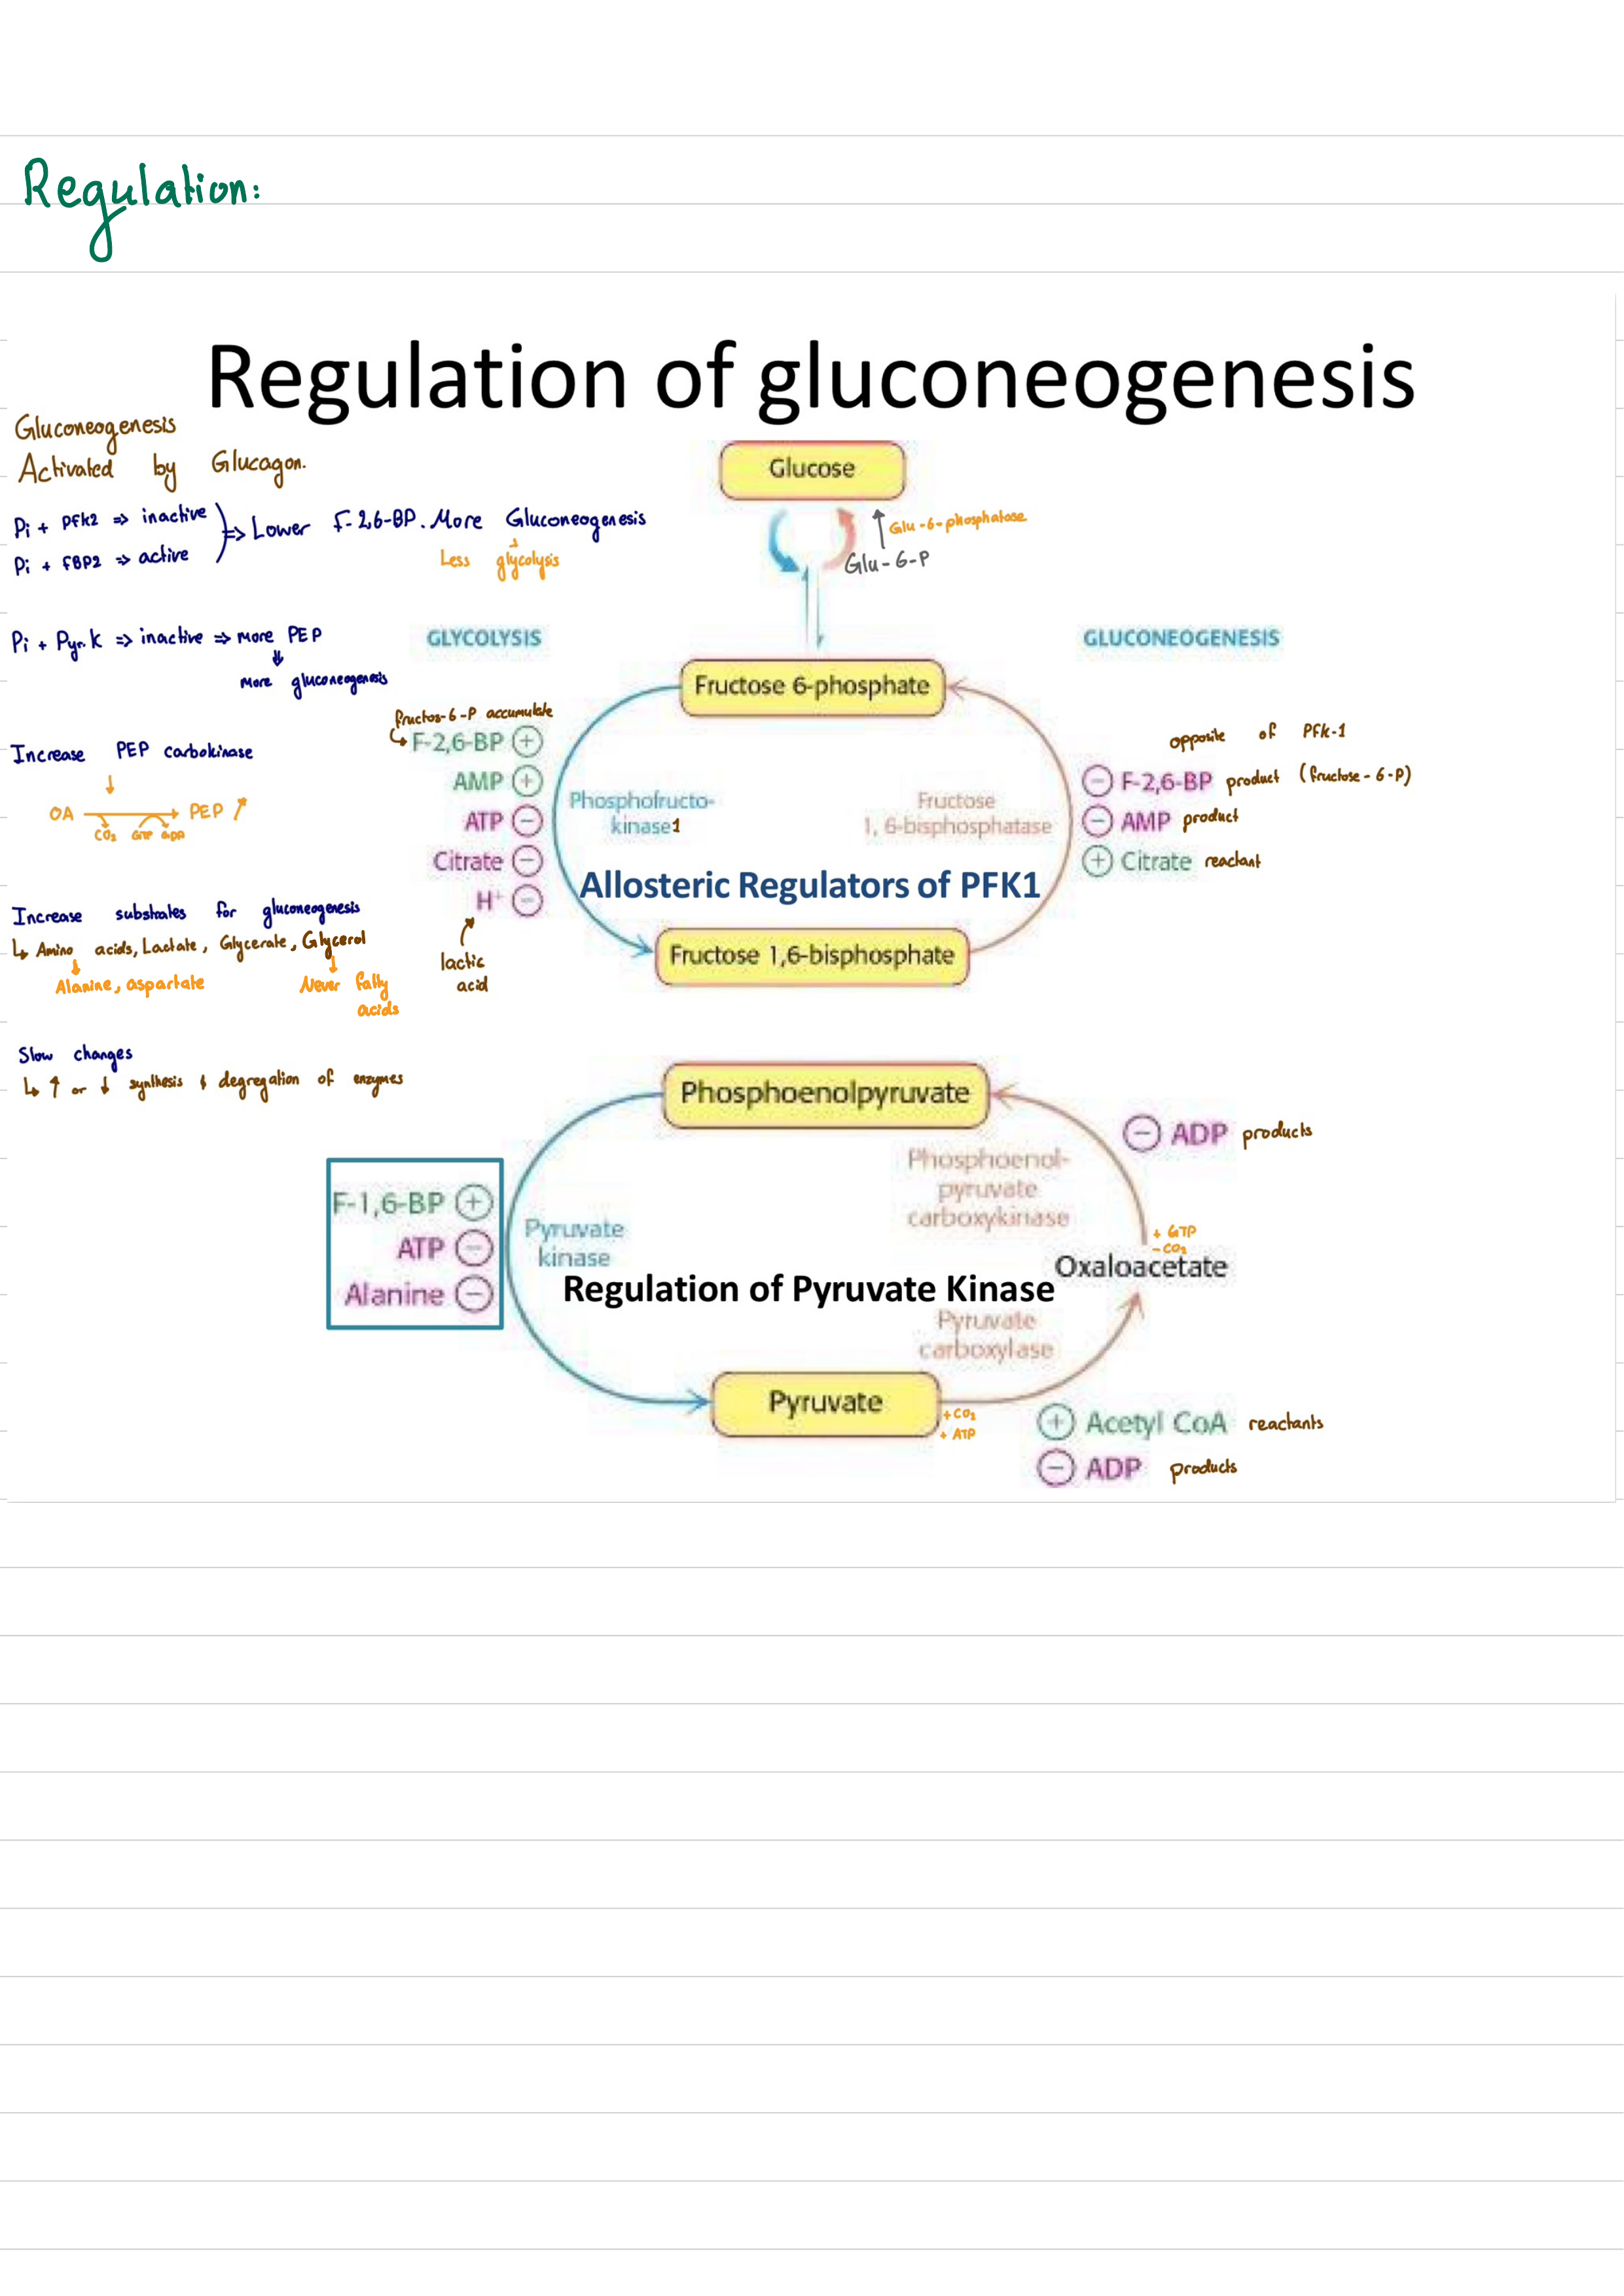 Regulation:
Regulation of gluconeogenesis
Gluconeogenesis
Activated by Glucagon.
Pi + PFK2 => inactive
Pi + FBP2 => active
=> Lower F-2,6-BP. More Gluconeogenesis
Less glycolysis
Pi + Pyr.K => inactive => more PEP
More gluconeogenesis
Increase PEP carbokinase
OA → PEP ↗
CO₂ GTP GDP
Increase substrates for gluconeogenesis
↳ Amino acids, Lactate, Glycerate, Glycerol
Alanine, aspartate
Never fatty
acids
Slow changes
↳ ↑ or ↓ synthesis & degregation of enzymes
Glucose
Glu-6-phosphatase
Glu-6-P
GLYCOLYSIS
GLUCONEOGENESIS
Fructose 6-phosphate
fructos-6-P accumulate
F-2,6-BP +
AMP +
ATP −
Citrate −
H⁺ −
lactic
acid
Phosphofructo-
kinase1
Fructose
1, 6-bisphosphatase
opposite of PFK-1
− F-2,6-BP product (fructose-6-P)
− AMP product
+ Citrate reactant
Allosteric Regulators of PFK1
Fructose 1,6-bisphosphate
Phosphoenolpyruvate
− ADP products
Phosphoenol-
pyruvate
carboxykinase
F-1,6-BP +
ATP −
Alanine −
Pyruvate
kinase
+ GTP
- CO₂
Oxaloacetate
Regulation of Pyruvate Kinase
Pyruvate
carboxylase
Pyruvate
+ CO₂
+ ATP
+ Acetyl CoA reactants
− ADP products